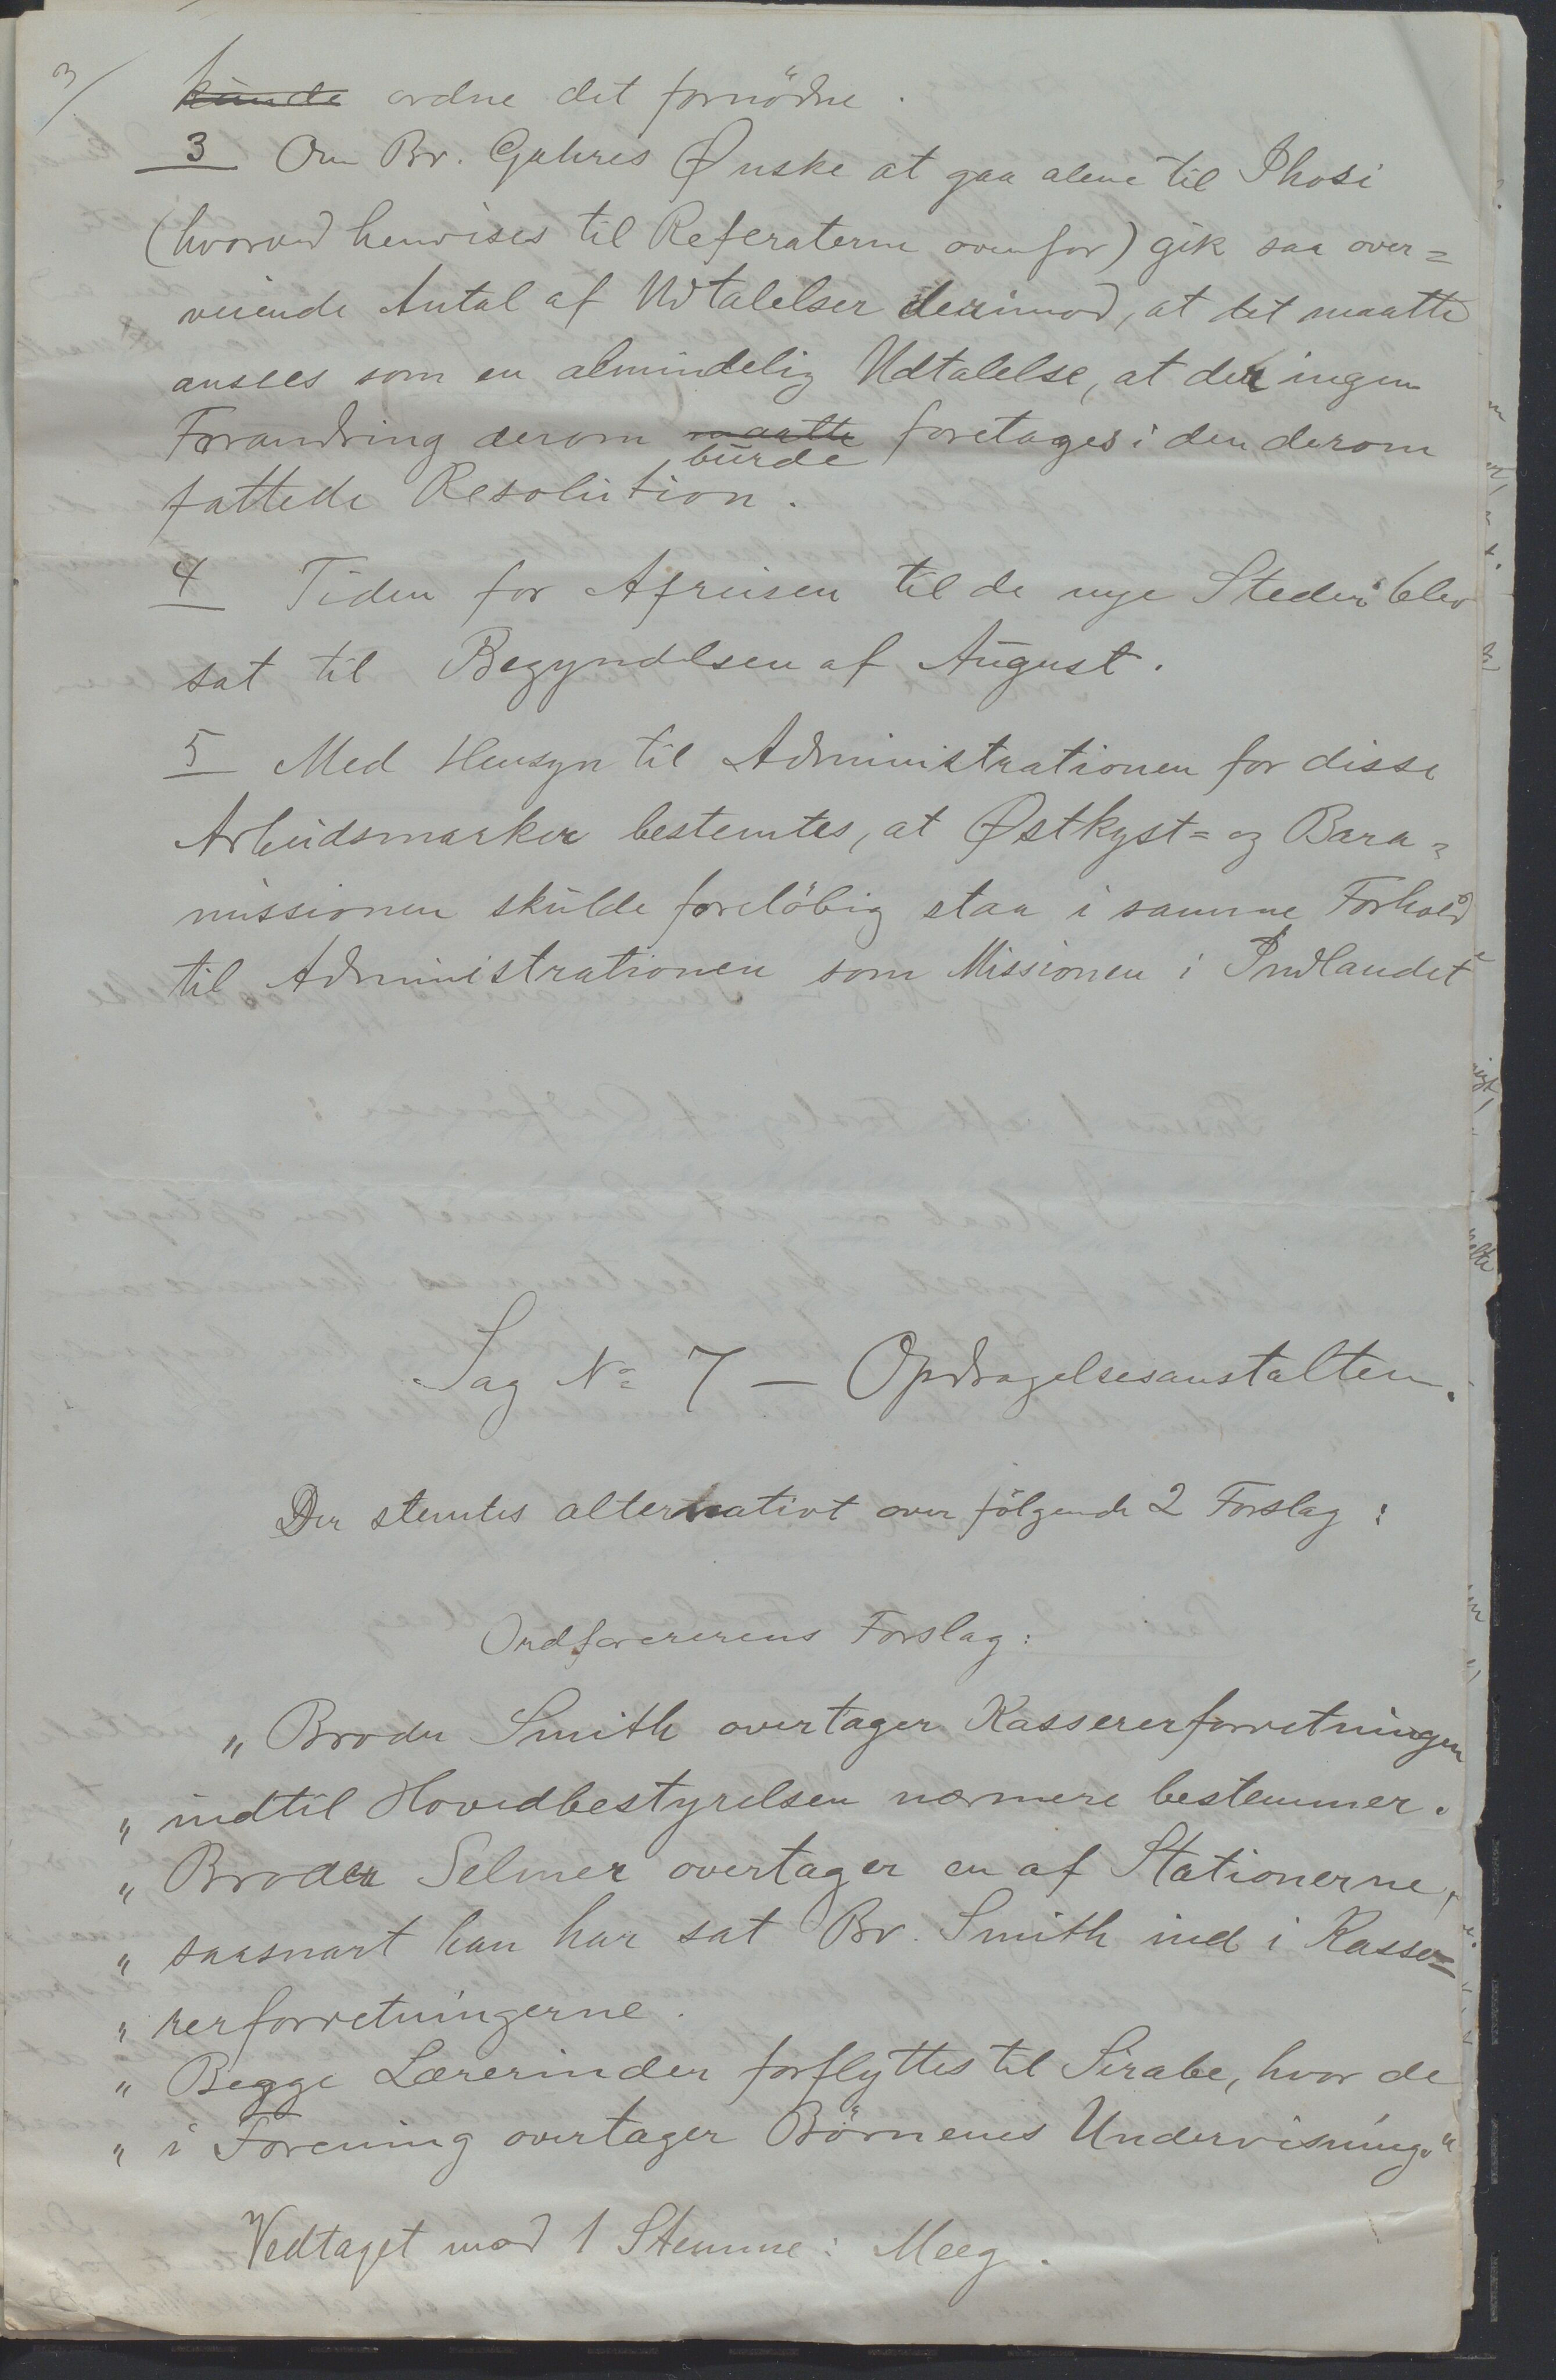 3/
kunde ordne det fornödne.
3 Om Br. Gahres Ønske at gaa alene til Ihosi
(hvorved henvises til Referaterne ovenfor) gik saa over=
veiende Antal af Udtalelser derimod, at det maatte
ansees som en almindelig Udtalelse, at der ingen
Forandring derom maatte foretages i den derom
burde
fattede Resolution.
4 Tiden for Afreisen til de nye Steder blev
sat til Begyndelsen af August.
5 Med Hensyn til Administrationen for disse
Arbeidsmarker bestemtes, at Østkyst= og Bara=
missionen skulde foreløbig staa i samme Forhold
til Administrationen som Missionen i Indlandet
Sag No 7 — Opdragelsesanstalten.
Der stemtes alternativt over følgende 2 Forslag:
Ordførererens Forslag:
„Broder Smith overtager Kassererforretningen
„indtil Hovedbestyrelsen nærmere bestemmer.
„Broder Selmer overtager en af Stationerne,
„saasnart han har sat Br. Smith ind i Kasse=
„rerforretningerne.
„Begge Lærerinder forflyttes til Sirabe, hvor de
„i Forening overtager Börnenes Undervisning."
Vedtaget mod 1 Stemme: Meeg.